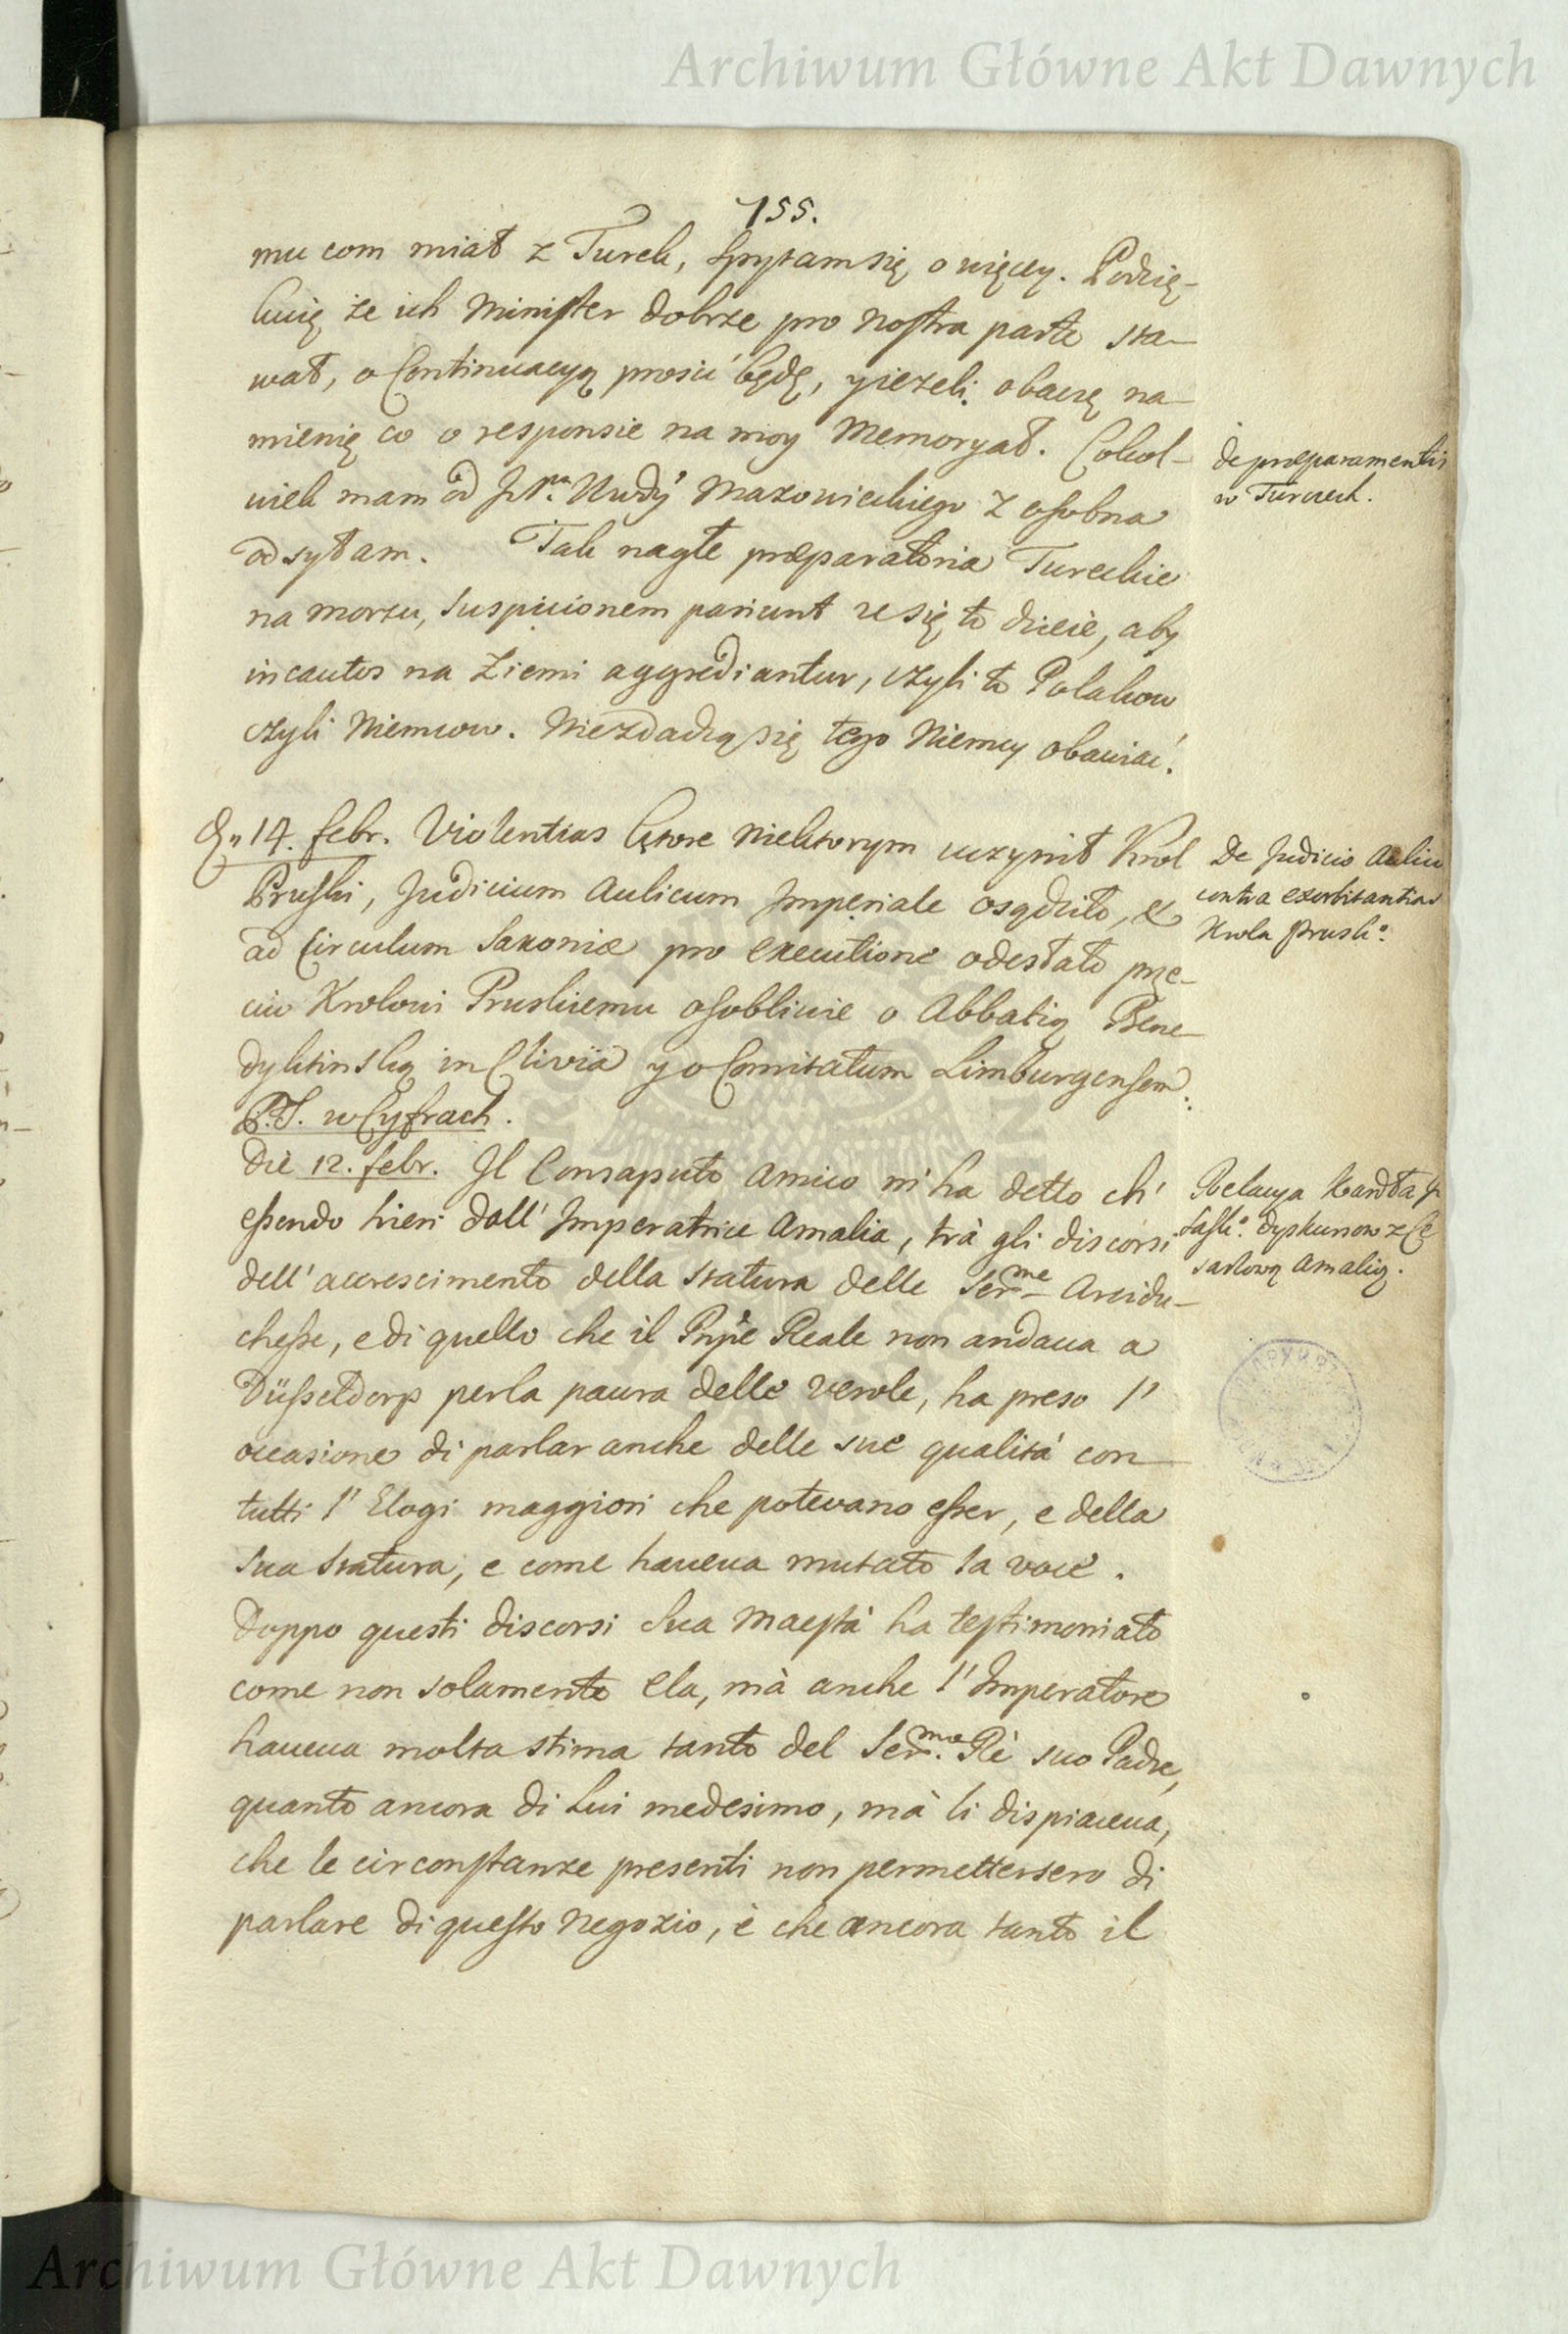 Archiwum Główne Akt Dawnych
155.
mu com miał z Turek, spytam się o więcey. Podzię-
kuię że ich Minister dobrze pro nostra parte sta-
wał, o Continuacyą prosić będę, y ieżeli obaczę na-
mienię co o responsie na moy Memoryał. Cokol-
wiek mam od Mazowieckiego z osobna
odsyłam. Tak nagłe præparatoria Tureckie
na morzu, suspicionem pariunt że się to dzieie, aby
incautos na Ziemi aggrediantur, czyli to Polakow
czyli Niemcow. Niezdadzą się tego Niemcy obawiać.
de præparamentis
w Turczech.
14. febr. Violentias ktore niektorym uczynił Krol
Pruski, Judicium Aulicum Imperiale osądziło, et
ad Circulum Saxoniæ pro executione odesłało prze-
ciw Krolowi Pruskiemu osobliwie o Abbatią Bene-
dyktinską in Clivia y o Comitatum Limburgensem.
P.S. w Cyfrach.
De Judicio Aulico
contra exorbitantias
Krola Prusko
Die 12. febr. Il Consaputo Amico m'ha detto ch'
essendo hieri dall' Imperatrice Amalia, trà gli discorsi
dell' accrescimento della statura delle Serme Arcidu-
chesse, e di quello che il Pnpe Reale non andaua a
Düsseldorp per la paura delle verole, ha preso l'
occasione di parlar anche delle sue qualità con
tutti l' Elogi maggiori che potevano esser, e della
sua statura, e come haueua mutato la voce.
Doppo questi discorsi Sua Maestà ha testimoniato
come non solamente ela, mà anche l' Imperatore
haueua molta stima tanto del Sermo Rè suo Padre,
quanto ancora di Lui medesimo, mà li dispiaceua,
che le circonstanze presenti non permettersero di
parlare di questo negozio, è che ancora tanto il
Relacya
dyskursow z Ce
sarzową Amalią.
Archiwum Główne Akt Dawnych